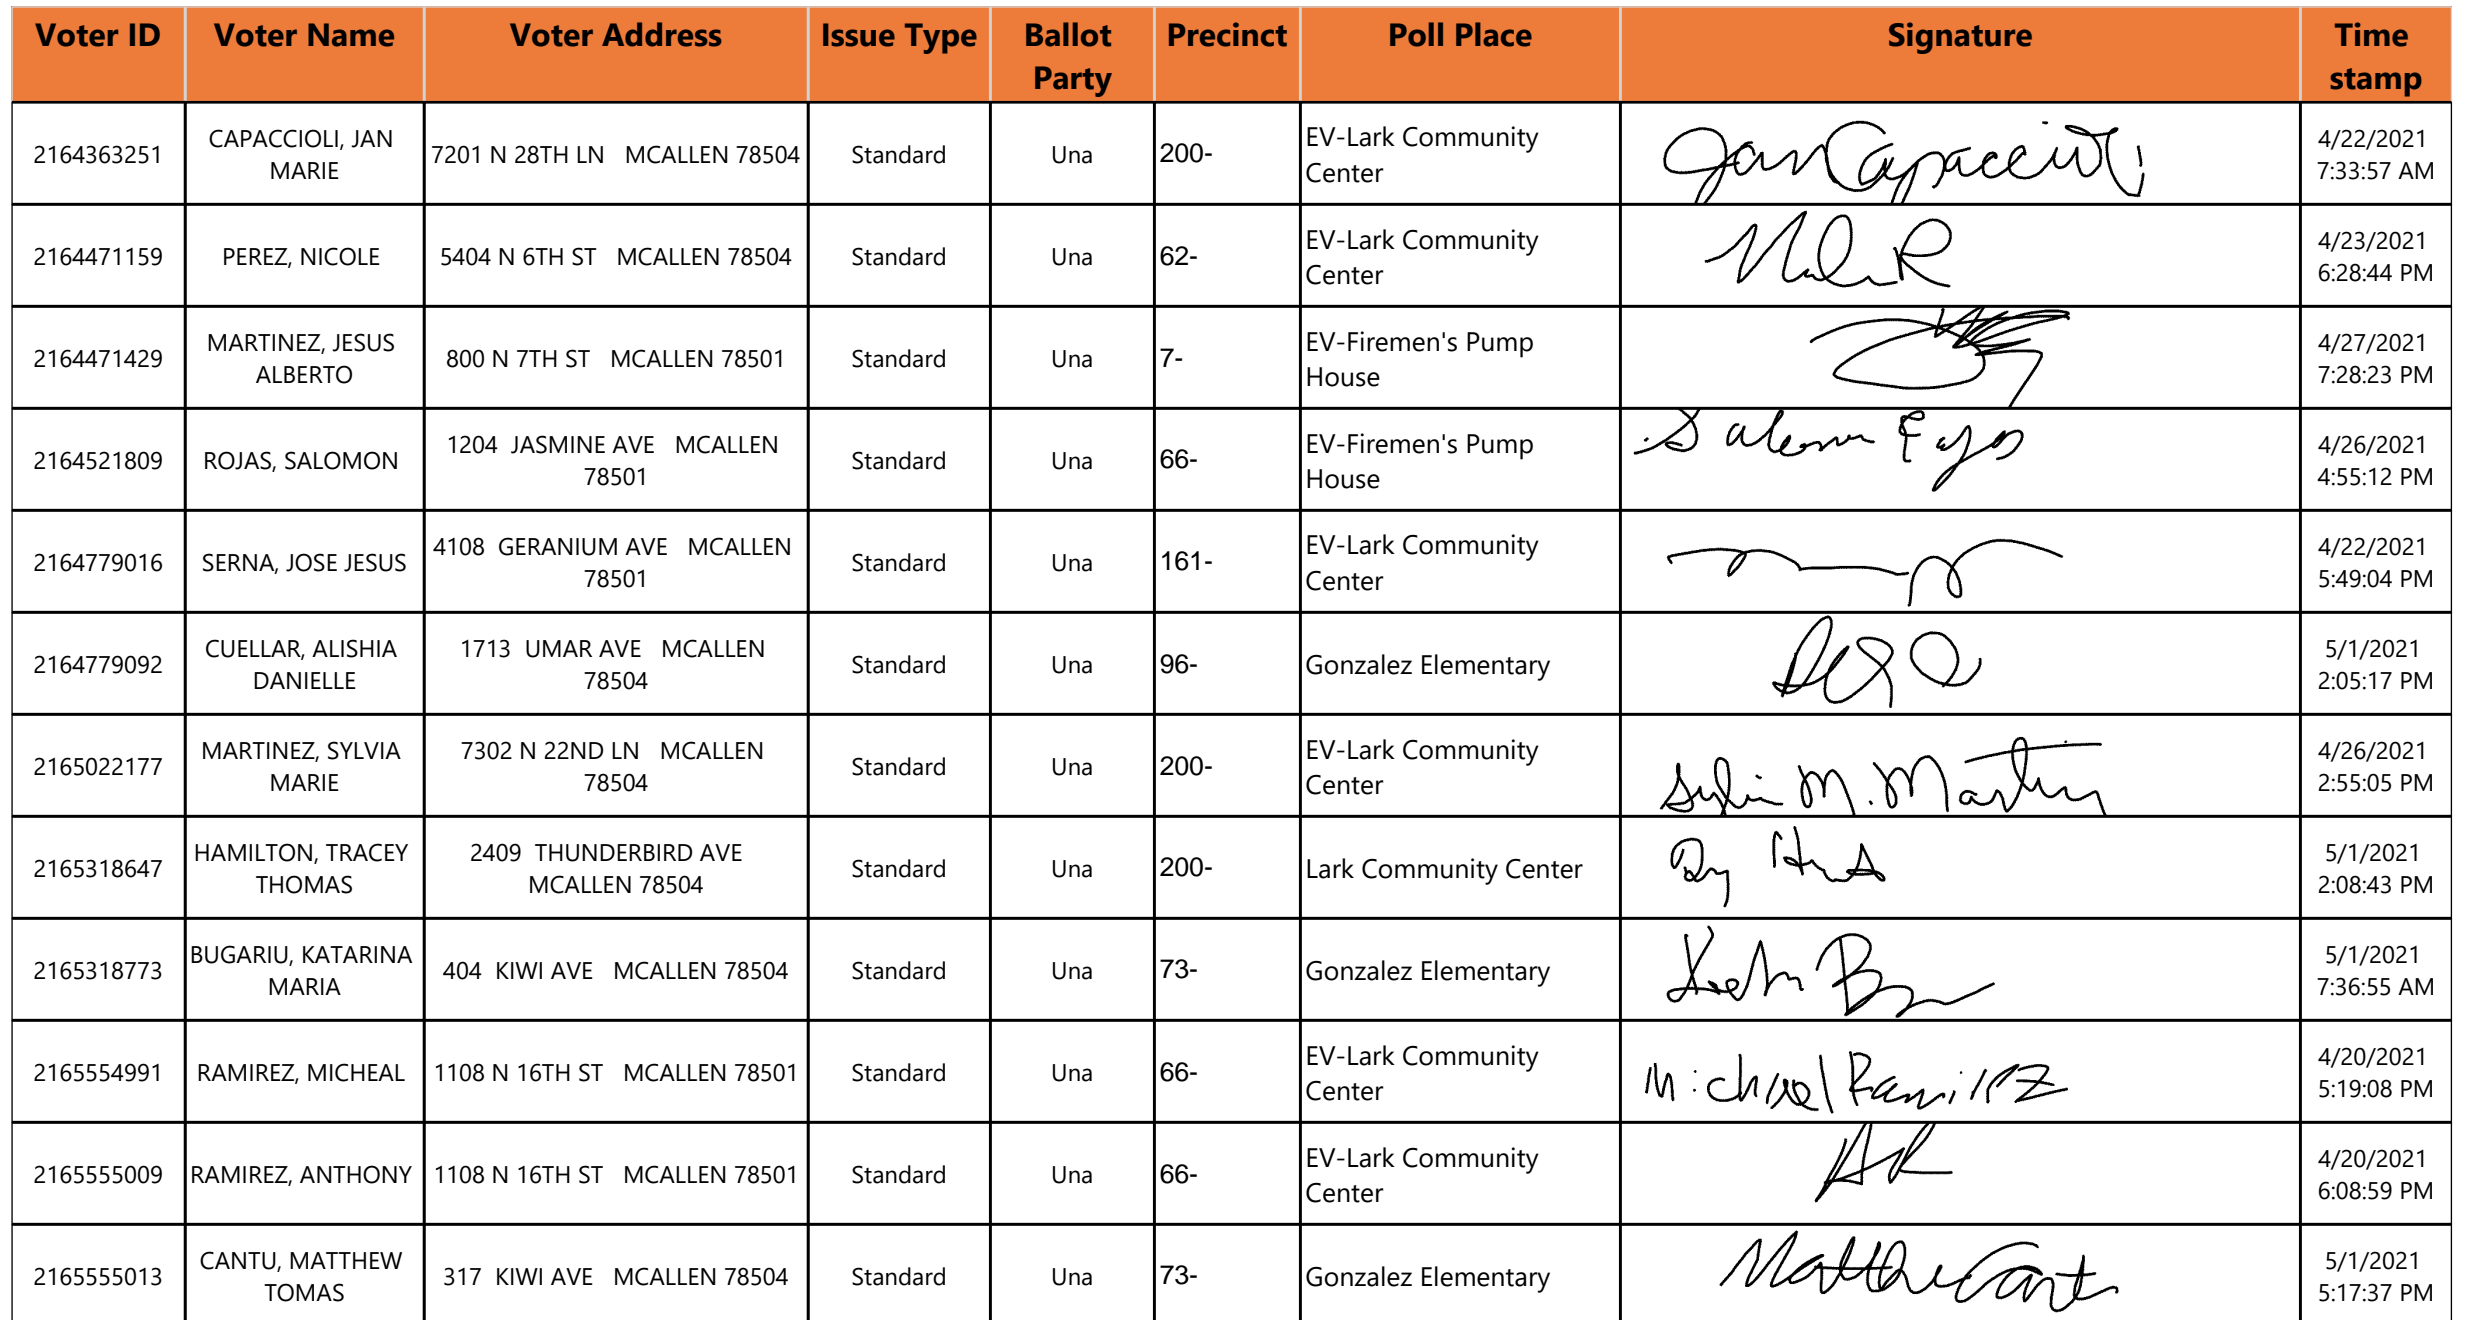 Voter ID Voter Name Voter Address Issue Type Ballot Party Precinct Poll Place Signature Time stamp
2164363251 CAPACCIOLI, JAN MARIE 7201 N 28TH LN MCALLEN 78504 Standard Una 200- EV-Lark Community Center Jan Capaccioli 4/22/2021 7:33:57 AM
2164471159 PEREZ, NICOLE 5404 N 6TH ST MCALLEN 78504 Standard Una 62- EV-Lark Community Center 4/23/2021 6:28:44 PM
2164471429 MARTINEZ, JESUS ALBERTO 800 N 7TH ST MCALLEN 78501 Standard Una 7- EV-Firemen's Pump House 4/27/2021 7:28:23 PM
2164521809 ROJAS, SALOMON 1204 JASMINE AVE MCALLEN 78501 Standard Una 66- EV-Firemen's Pump House 4/26/2021 4:55:12 PM
2164779016 SERNA, JOSE JESUS 4108 GERANIUM AVE MCALLEN 78501 Standard Una 161- EV-Lark Community Center 4/22/2021 5:49:04 PM
2164779092 CUELLAR, ALISHIA DANIELLE 1713 UMAR AVE MCALLEN 78504 Standard Una 96- Gonzalez Elementary 5/1/2021 2:05:17 PM
2165022177 MARTINEZ, SYLVIA MARIE 7302 N 22ND LN MCALLEN 78504 Standard Una 200- EV-Lark Community Center Sylvia M. Martinez 4/26/2021 2:55:05 PM
2165318647 HAMILTON, TRACEY THOMAS 2409 THUNDERBIRD AVE MCALLEN 78504 Standard Una 200- Lark Community Center 5/1/2021 2:08:43 PM
2165318773 BUGARIU, KATARINA MARIA 404 KIWI AVE MCALLEN 78504 Standard Una 73- Gonzalez Elementary 5/1/2021 7:36:55 AM
2165554991 RAMIREZ, MICHEAL 1108 N 16TH ST MCALLEN 78501 Standard Una 66- EV-Lark Community Center Michael Ramirez 4/20/2021 5:19:08 PM
2165555009 RAMIREZ, ANTHONY 1108 N 16TH ST MCALLEN 78501 Standard Una 66- EV-Lark Community Center AR 4/20/2021 6:08:59 PM
2165555013 CANTU, MATTHEW TOMAS 317 KIWI AVE MCALLEN 78504 Standard Una 73- Gonzalez Elementary Matthew Cantu 5/1/2021 5:17:37 PM